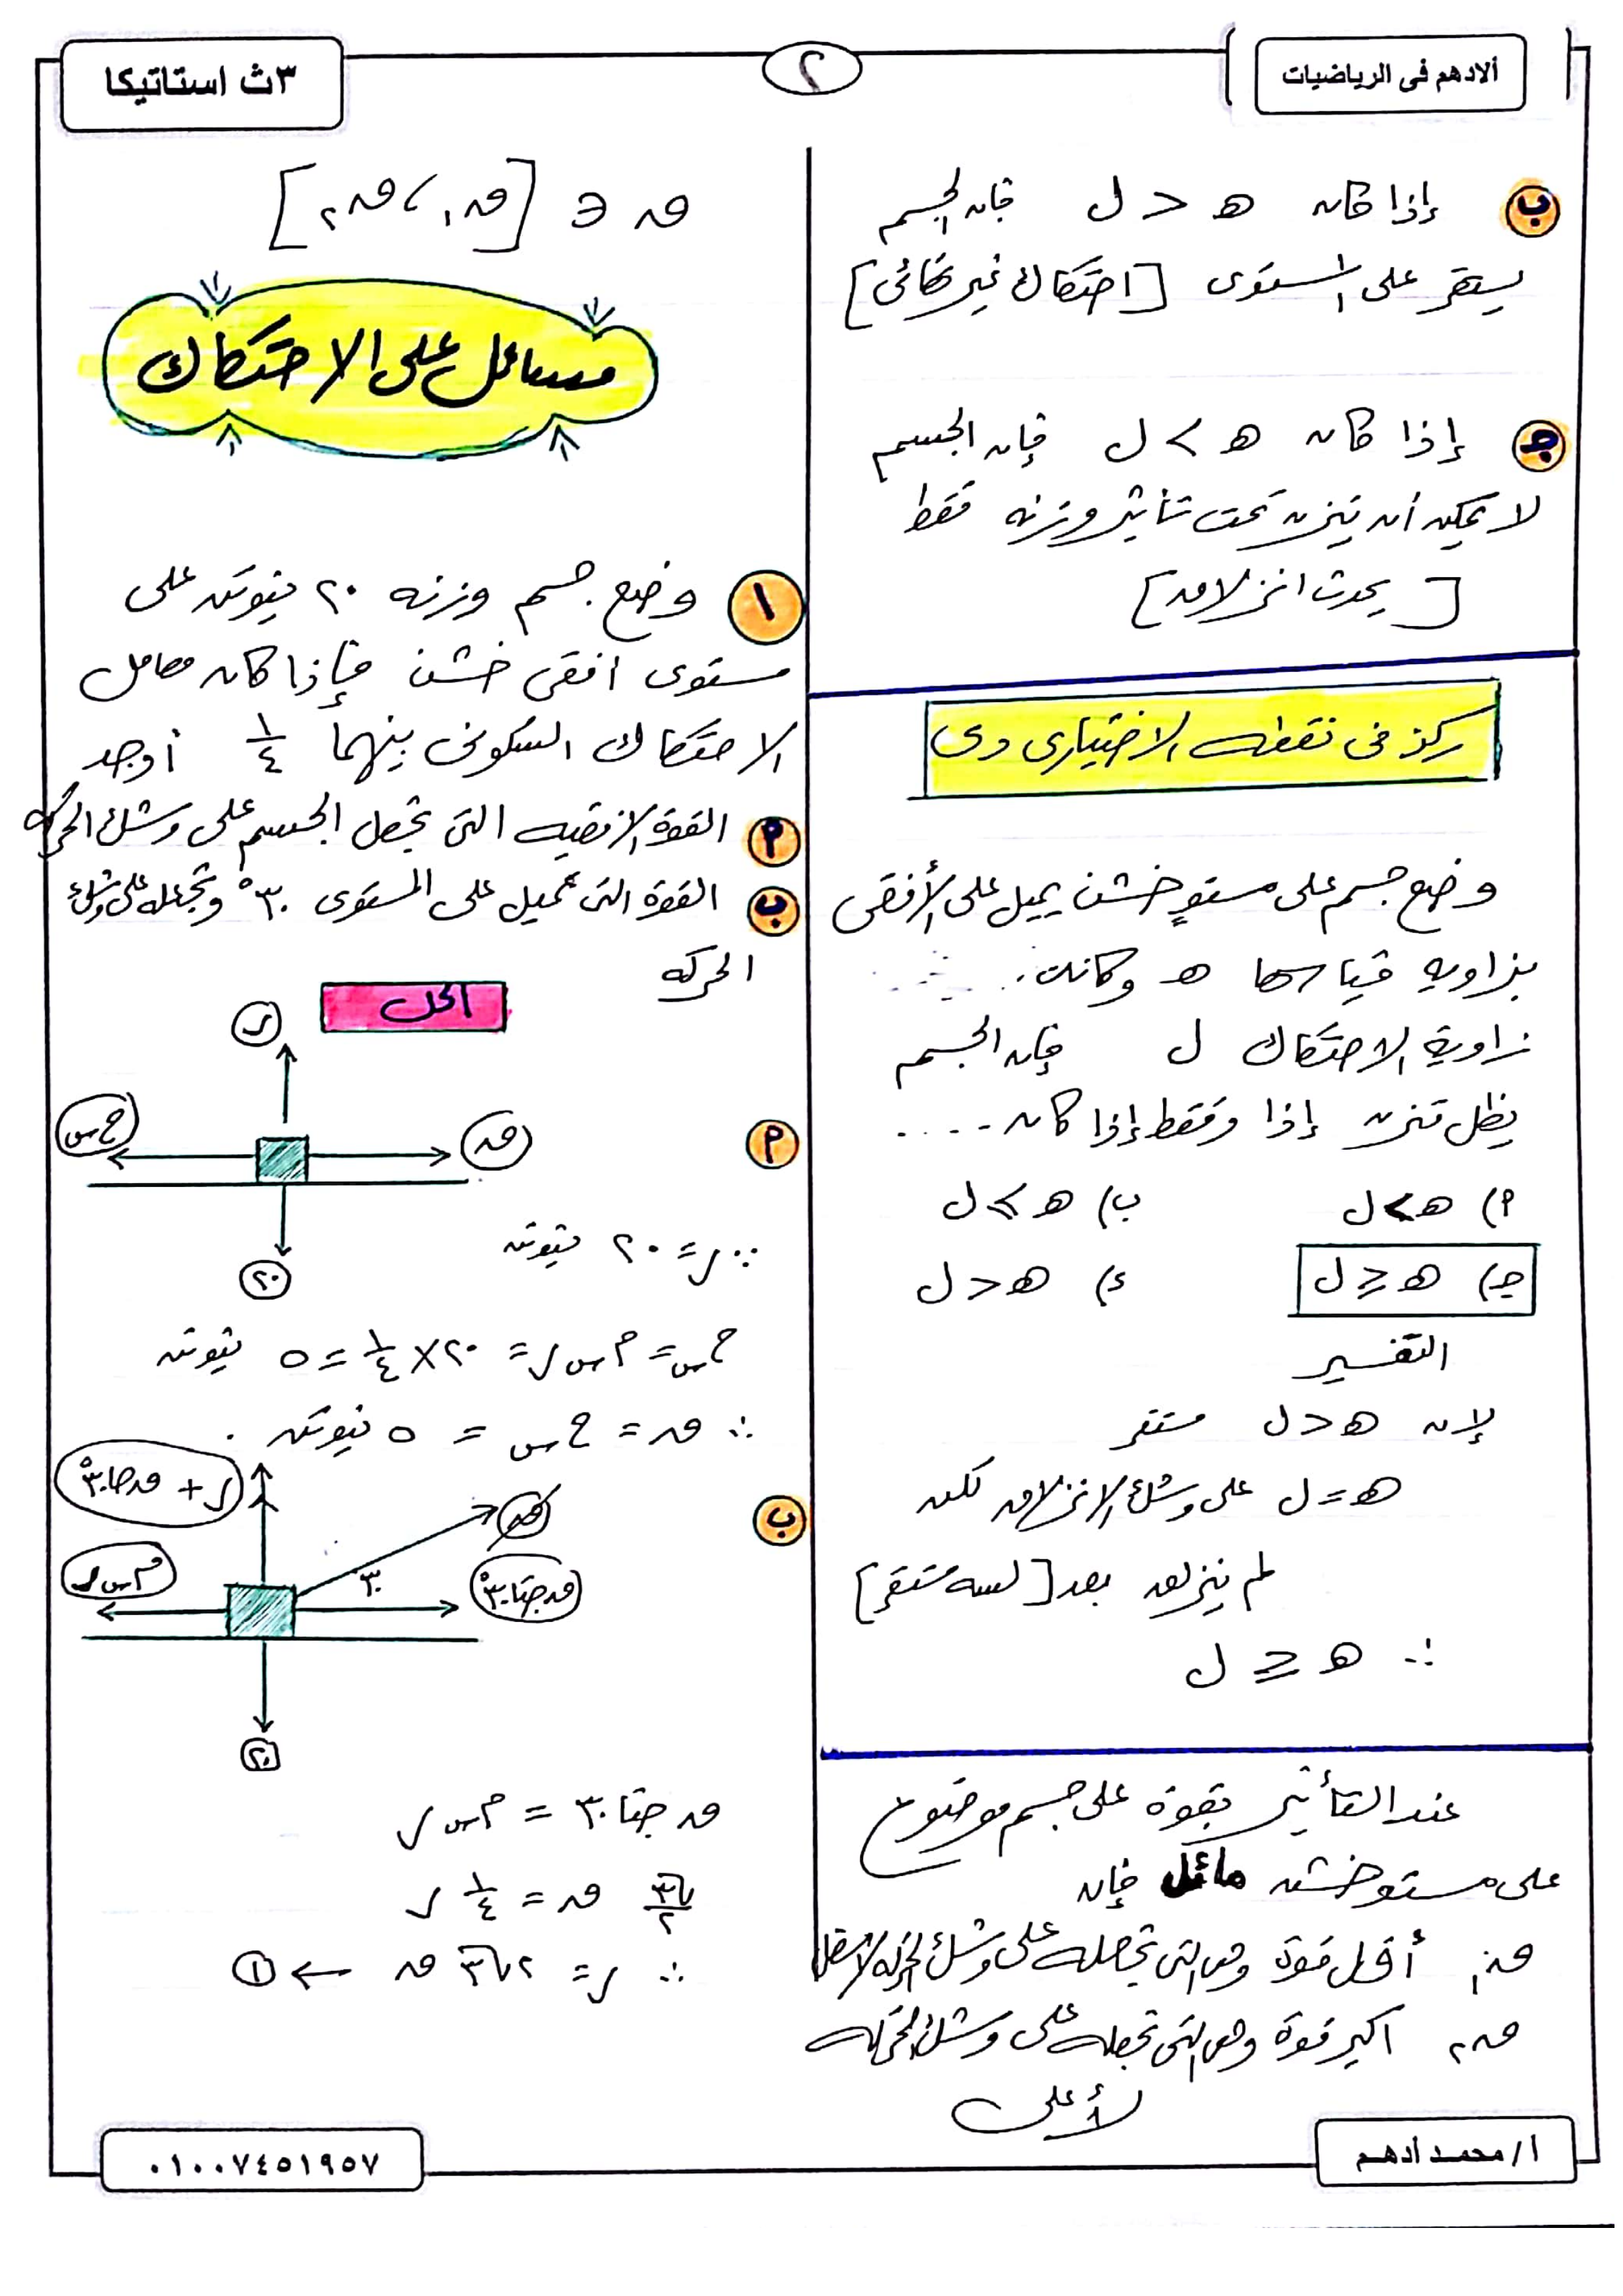 ألادهم فى الرياضيات
٢
٣ث استاتيكا
ب إذا كان هـ < ل فإن الجسم
يستقر على المستوى [احتكاك غير نهائى]
جـ إذا كان هـ > ل فإن الجسم
لا يمكن أن يتزن تحت تأثير وزنه فقط
[يحدث انزلاق]
ركز فى نقطه الاختيارى دى
وضع جسم على مستوٍ خشن يميل على الأفقى
بزاوية قياسها هـ وكانت
زاوية الاحتكاك ل فإن الجسم
يظل متزن إذا وفقط إذا كان ....
أ) هـ > ل ب) هـ ⩾ ل
جـ) هـ ≤ ل د) هـ < ل
التفسير
لإن هـ < ل مستقر
هـ = ل على وشك الانزلاق لكن
لم ينزلق بعد [لسه مستقر]
∴ هـ ≤ ل
عند التأثير بقوة على جسم موضوع
على مستو خشن مائل فإن
ق١ أقل قوة وهى التى تجعله على وشك الحركه لأسفل
ق٢ اكبر قوة وهى التى تجعله على وشك الحركه
لأعلى
ق ∈ [ق١ ، ق٢]
مسائل على الاحتكاك
١ وضع جسم وزنه ٢٠ نيوتن على
مستوى افقى خشن فإذا كان معامل
الاحتكاك السكونى بينهما ١/٤ أوجد
أ القوة الافقيه التى تجعل الجسم على وشك الحركه
ب القوة التى تميل على المستوى ٣٠° وتجعله على وشك
الحركه
الحل
أ
ر
ح س
ق
٢٠
∴ ر = ٢٠ نيوتن
ح س = م س ر = ٢٠ × ١/٤ = ٥ نيوتن
∴ ق = ح س = ٥ نيوتن
ب
ر + ق جا ٣٠°
ق
م س ر
٣٠
ق جتا ٣٠°
٢٠
ق جتا ٣٠ = م س ر
√٣/٢ ق = ١/٤ ر
∴ ر = ٢√٣ ق ← ①
أ/ محمد أدهم
٠١٠٠٧٤٥١٩٥٧